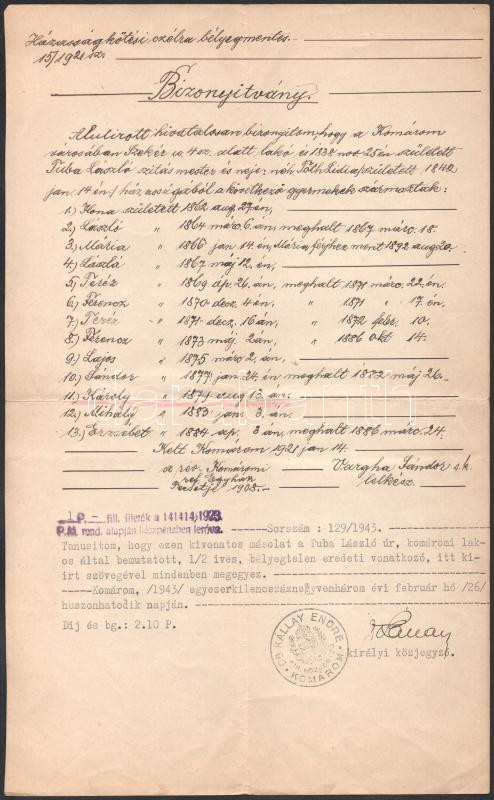 Házasságkötési czélra bélyegmentes.
15/1921 sz.
Bizonyitvány.
Alulirott hivatalosan bizonyitom, hogy a Komárom
városában Szekér u. 4 sz. alatt lakó és 1838 nov. 25én született
Tuba László szitás mester és neje: néh. Tóth Lidia /született 1842
jan 14 én/ házasságából a következő gyermekek származtak:
1.) Ilona született 1862 aug. 27.én,
2.) László " 1864 márc. 6.án, meghalt 1867 márc. 18.
3.) Mária " 1866 jan 14.én, Mária férjhez ment 1892 aug. 20.
4.) László " 1867 máj 12.én,
5.) Teréz " 1869 áp. 26.án, meghalt 1871 márc. 22.én.
6.) Ferencz " 1870 decz. 4.én, " 1871 " 17.én.
7.) Teréz " 1871 decz. 16 án, " 1872 febr. 10.
8.) Ferencz " 1873 máj. 2.án, " 1886 okt 14.
9.) Lajos " 1875 márc 2.án,
10.) Sándor " 1877 jan. 24.én meghalt 1882 máj 26.
11.) Károly " 1879 aug 13.án.
12.) Mihály " 1883 jan. 3.án.
13.) Erzsébet " 1884 áp. 3 án, meghalt 1886 márc. 24.
Kelt Komárom 1921 jan 14.
a rev. Komáromi
ref. Egyház
Pecsétje 1908.
Vargha Sándor s.k.
lelkész.
1 P. – fill. illeték a 141414/1923.
P.M. rend. alapján készpénzben leróva.
Sorszám : 129/1943.
Tanusitom, hogy ezen kivonatos másolat a Tuba László úr, komáromi lak-
os által bemutatott, 1/2 ives, bélyegtelen eredeti vonatkozó, itt ki-
irt szövegével mindenben megegyez.
Komárom, /1943/ egyezerkilencszáznegyvenhárom évi február hó /26/
huszonhatodik napján.
Dij és bg.: 2.10 P.
királyi közjegyző.
DR KÁLLAY ENDRE
KOMÁROM